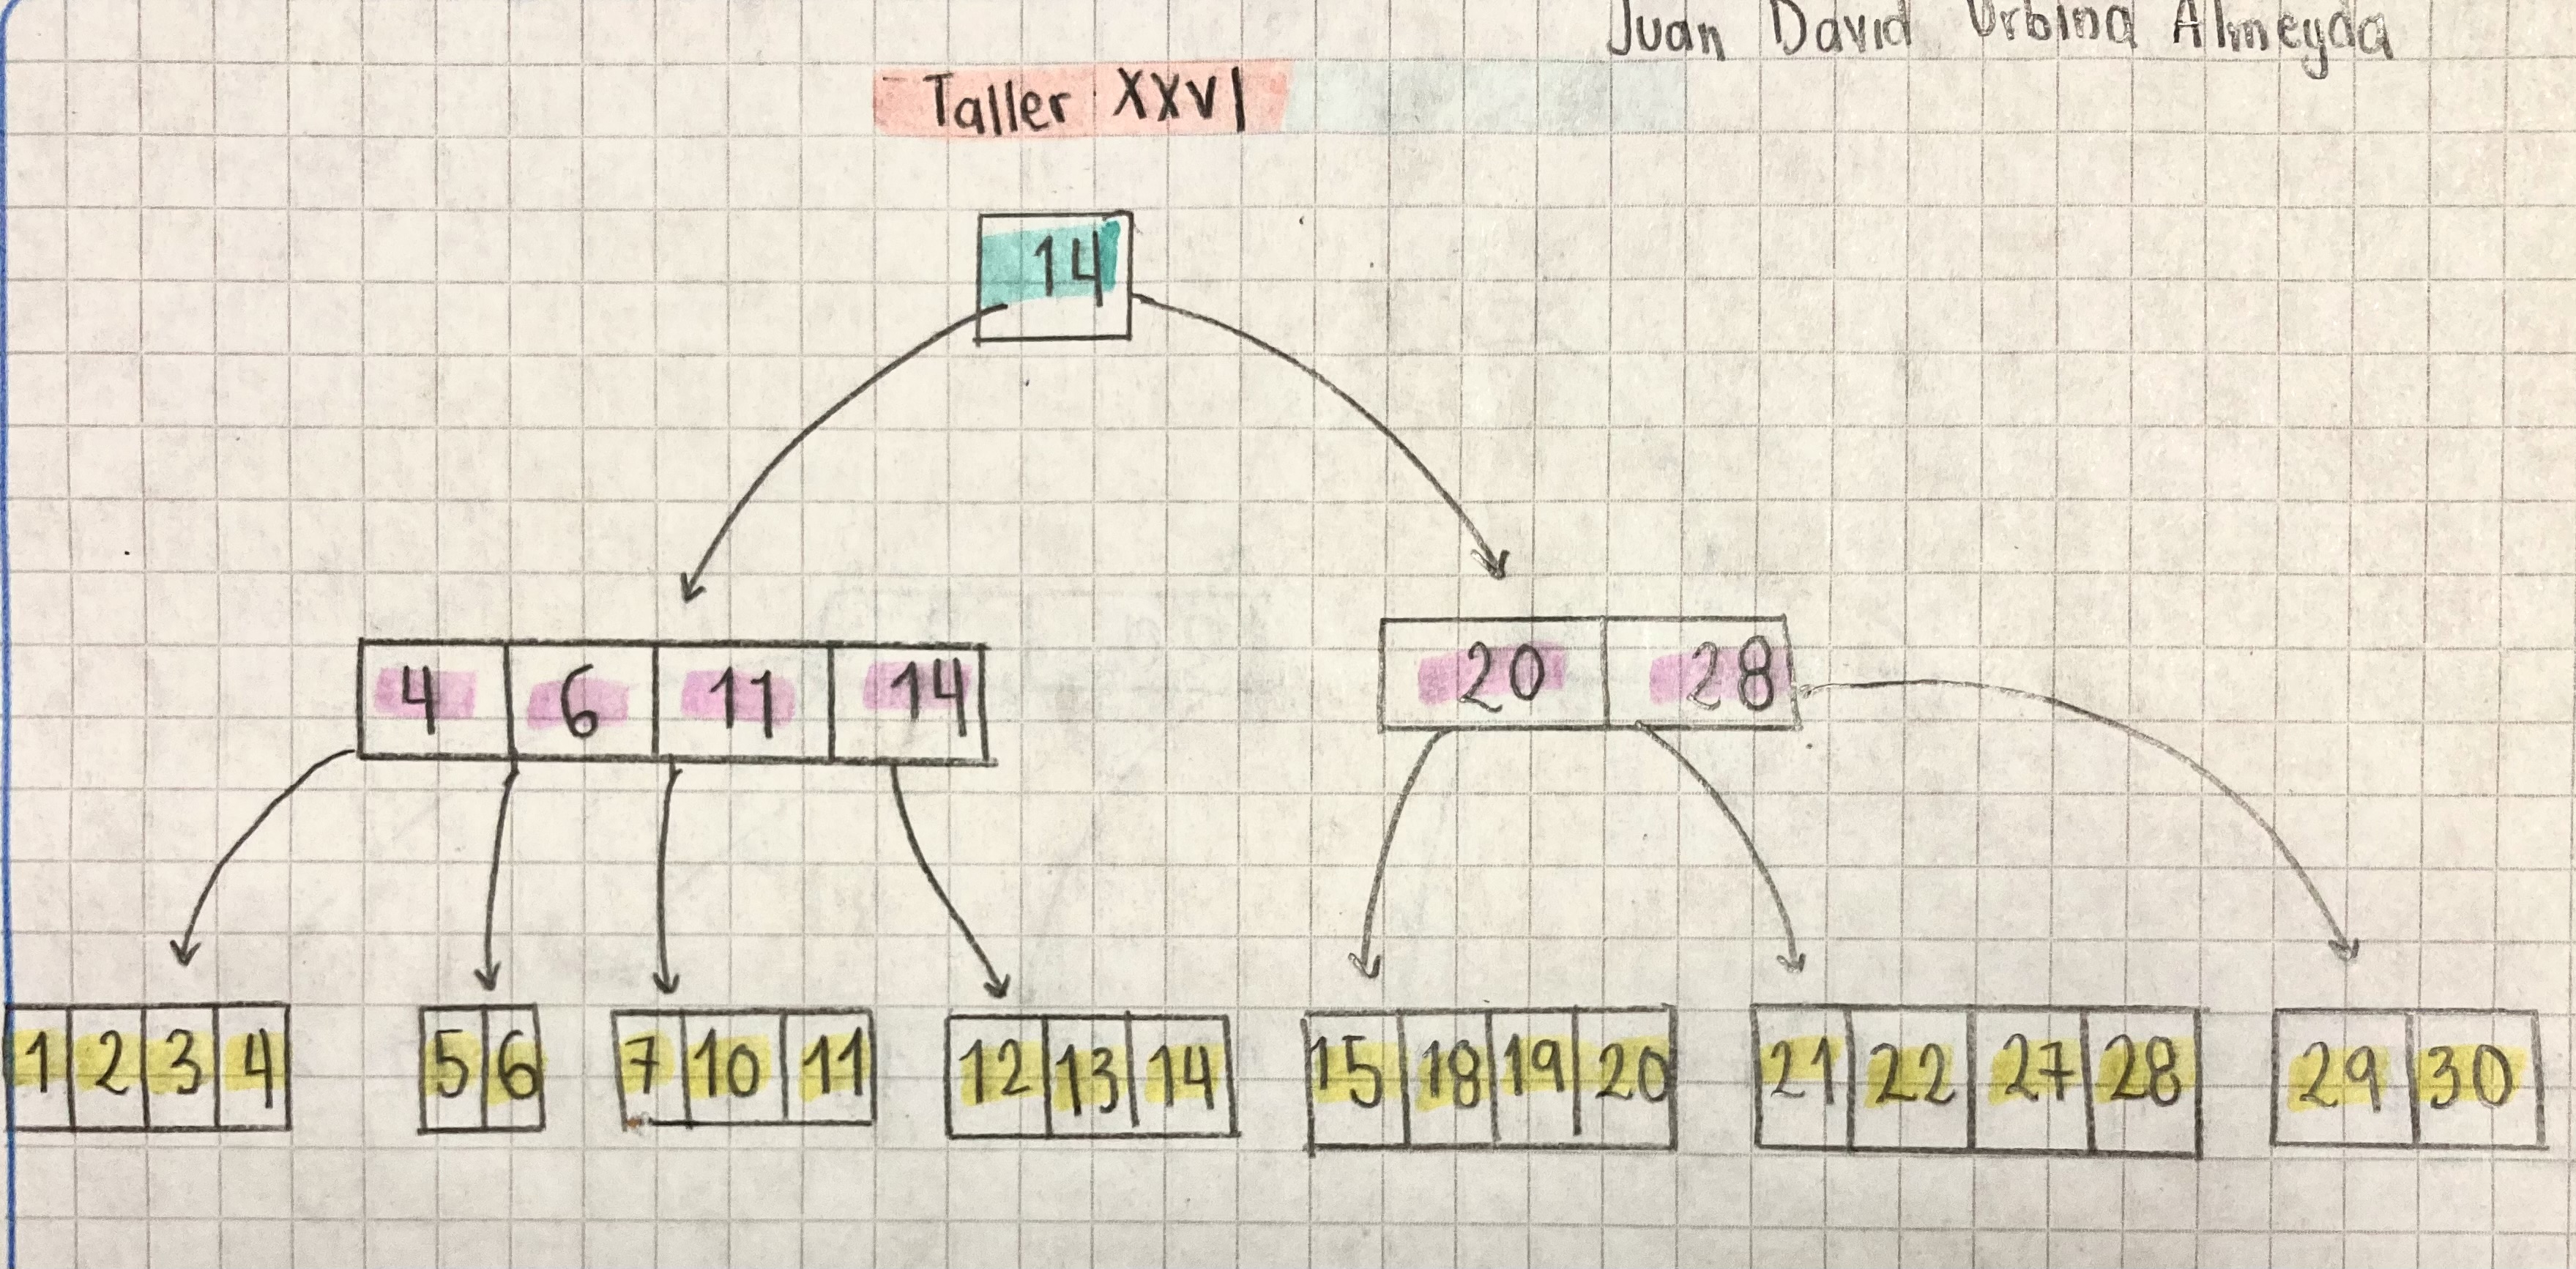 Juan David Urbina Almeyda
Taller XXVI
14
4 6 11 14
20 28
1 2 3 4
5 6
7 10 11
12 13 14
15 18 19 20
21 22 27 28
29 30